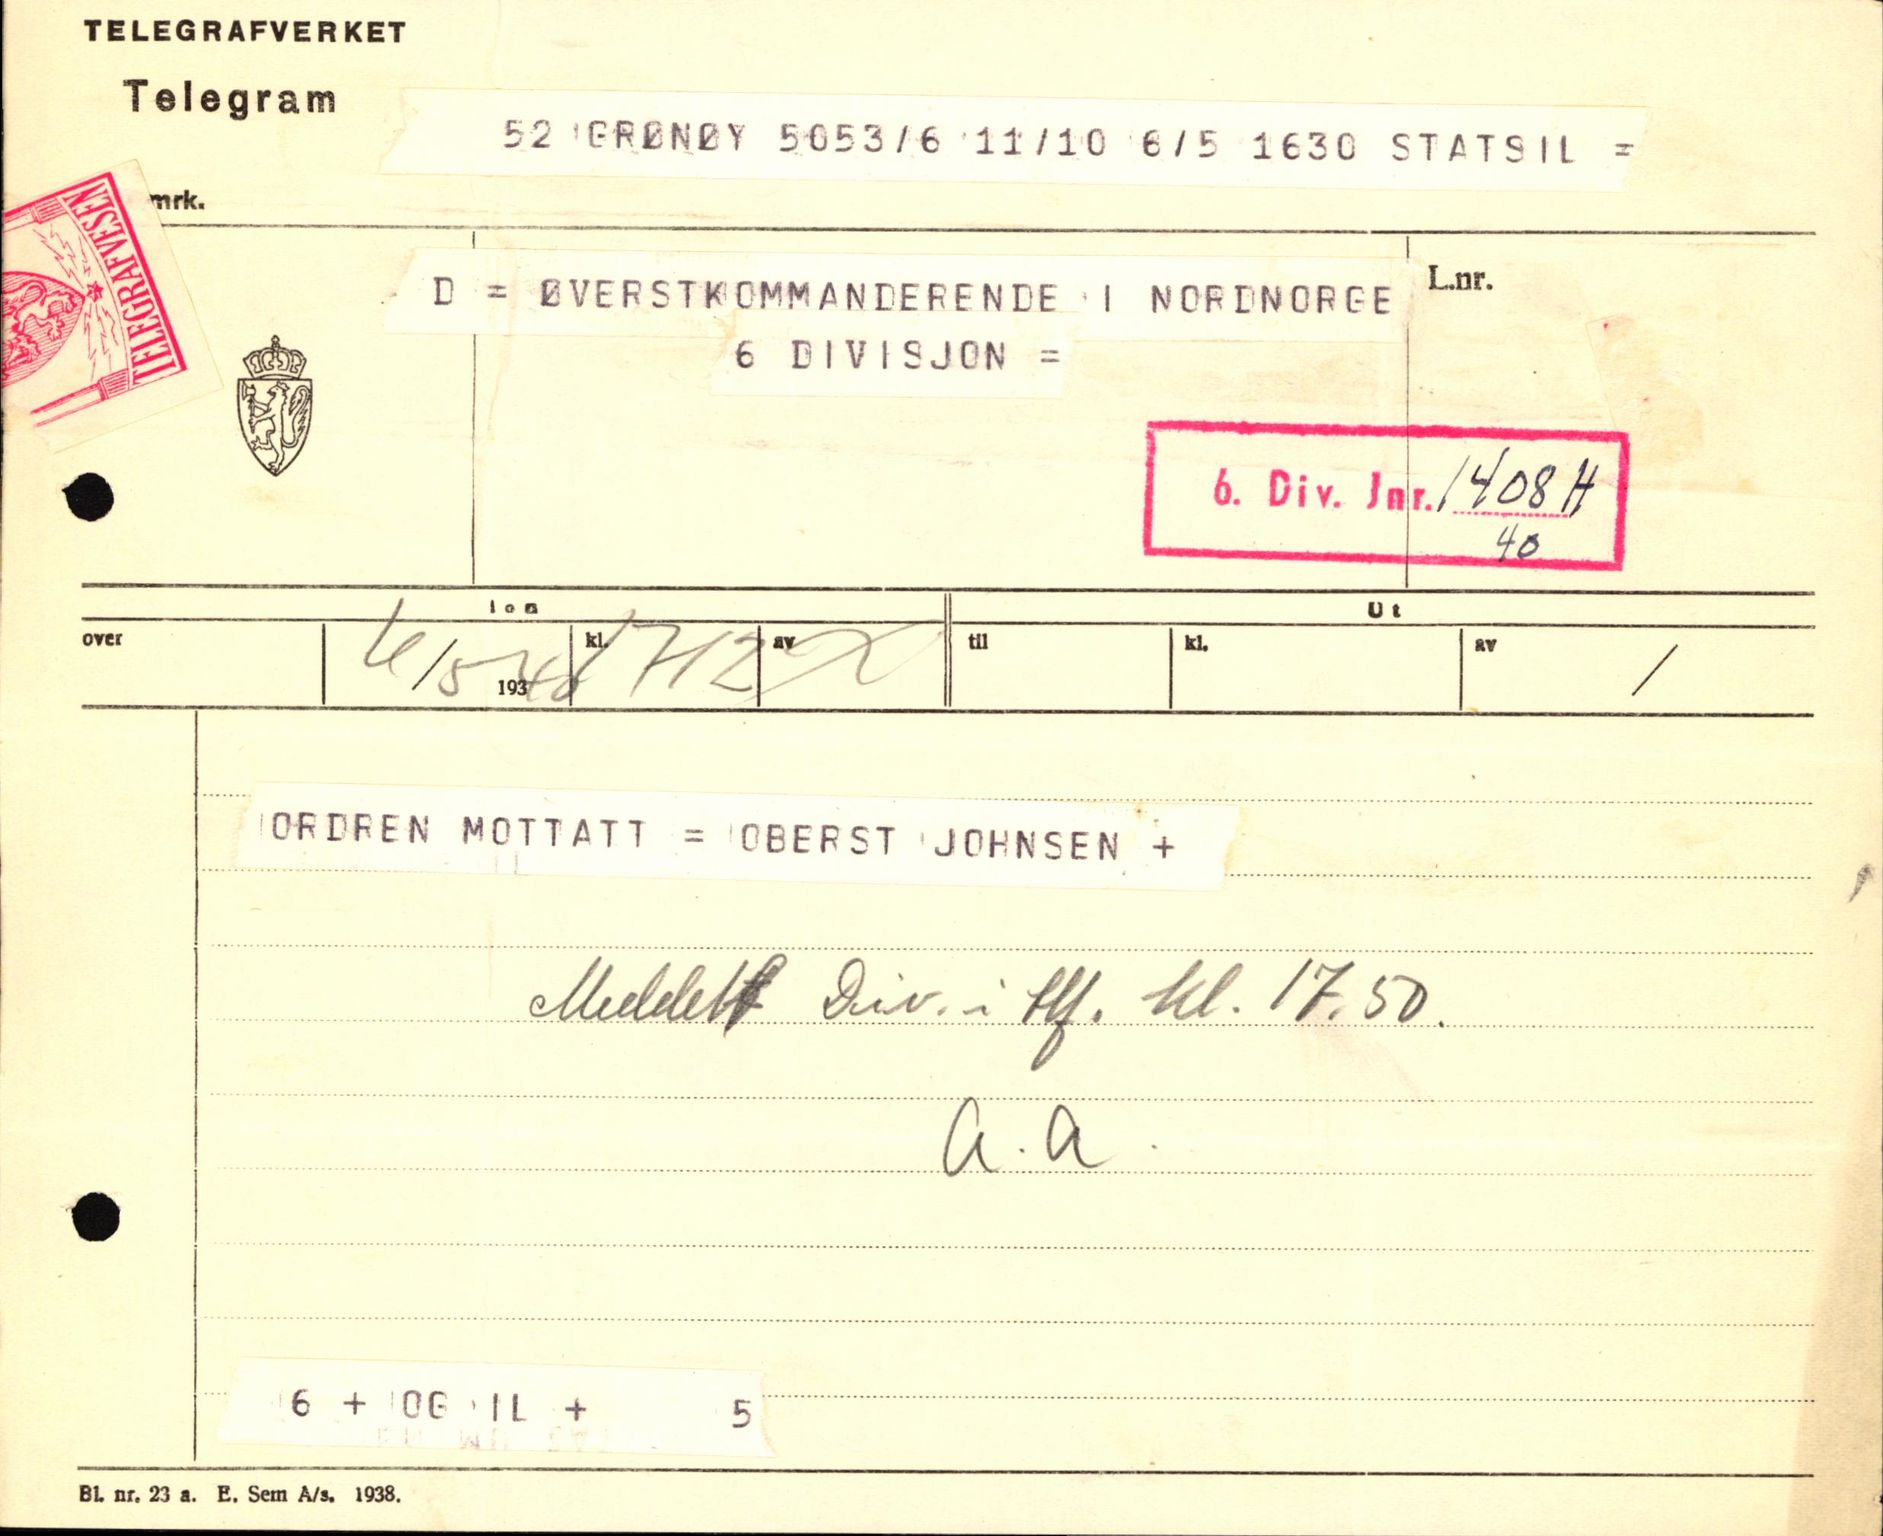 TELEGRAFVERKET
Telegram
52 GRØNØY 5053/6 11/10 6/5 1630 STATSIL =
mrk.
TELEGRAFVESEN
D = ØVERSTKOMMANDERENDE I NORDNORGE
L.nr.
6 DIVISJON =
6. Div. Jnr. 1408 H
40
Inn Ut
over 6/5 193 40 kl. 1712 av til kl. av /
ORDREN MOTTATT = OBERST JOHNSEN +
Meddelt Div. i tlf. kl. 17.50.
a. a.
6 + OG IL + 5
Bl. nr. 23 a. E. Sem A/s. 1938.